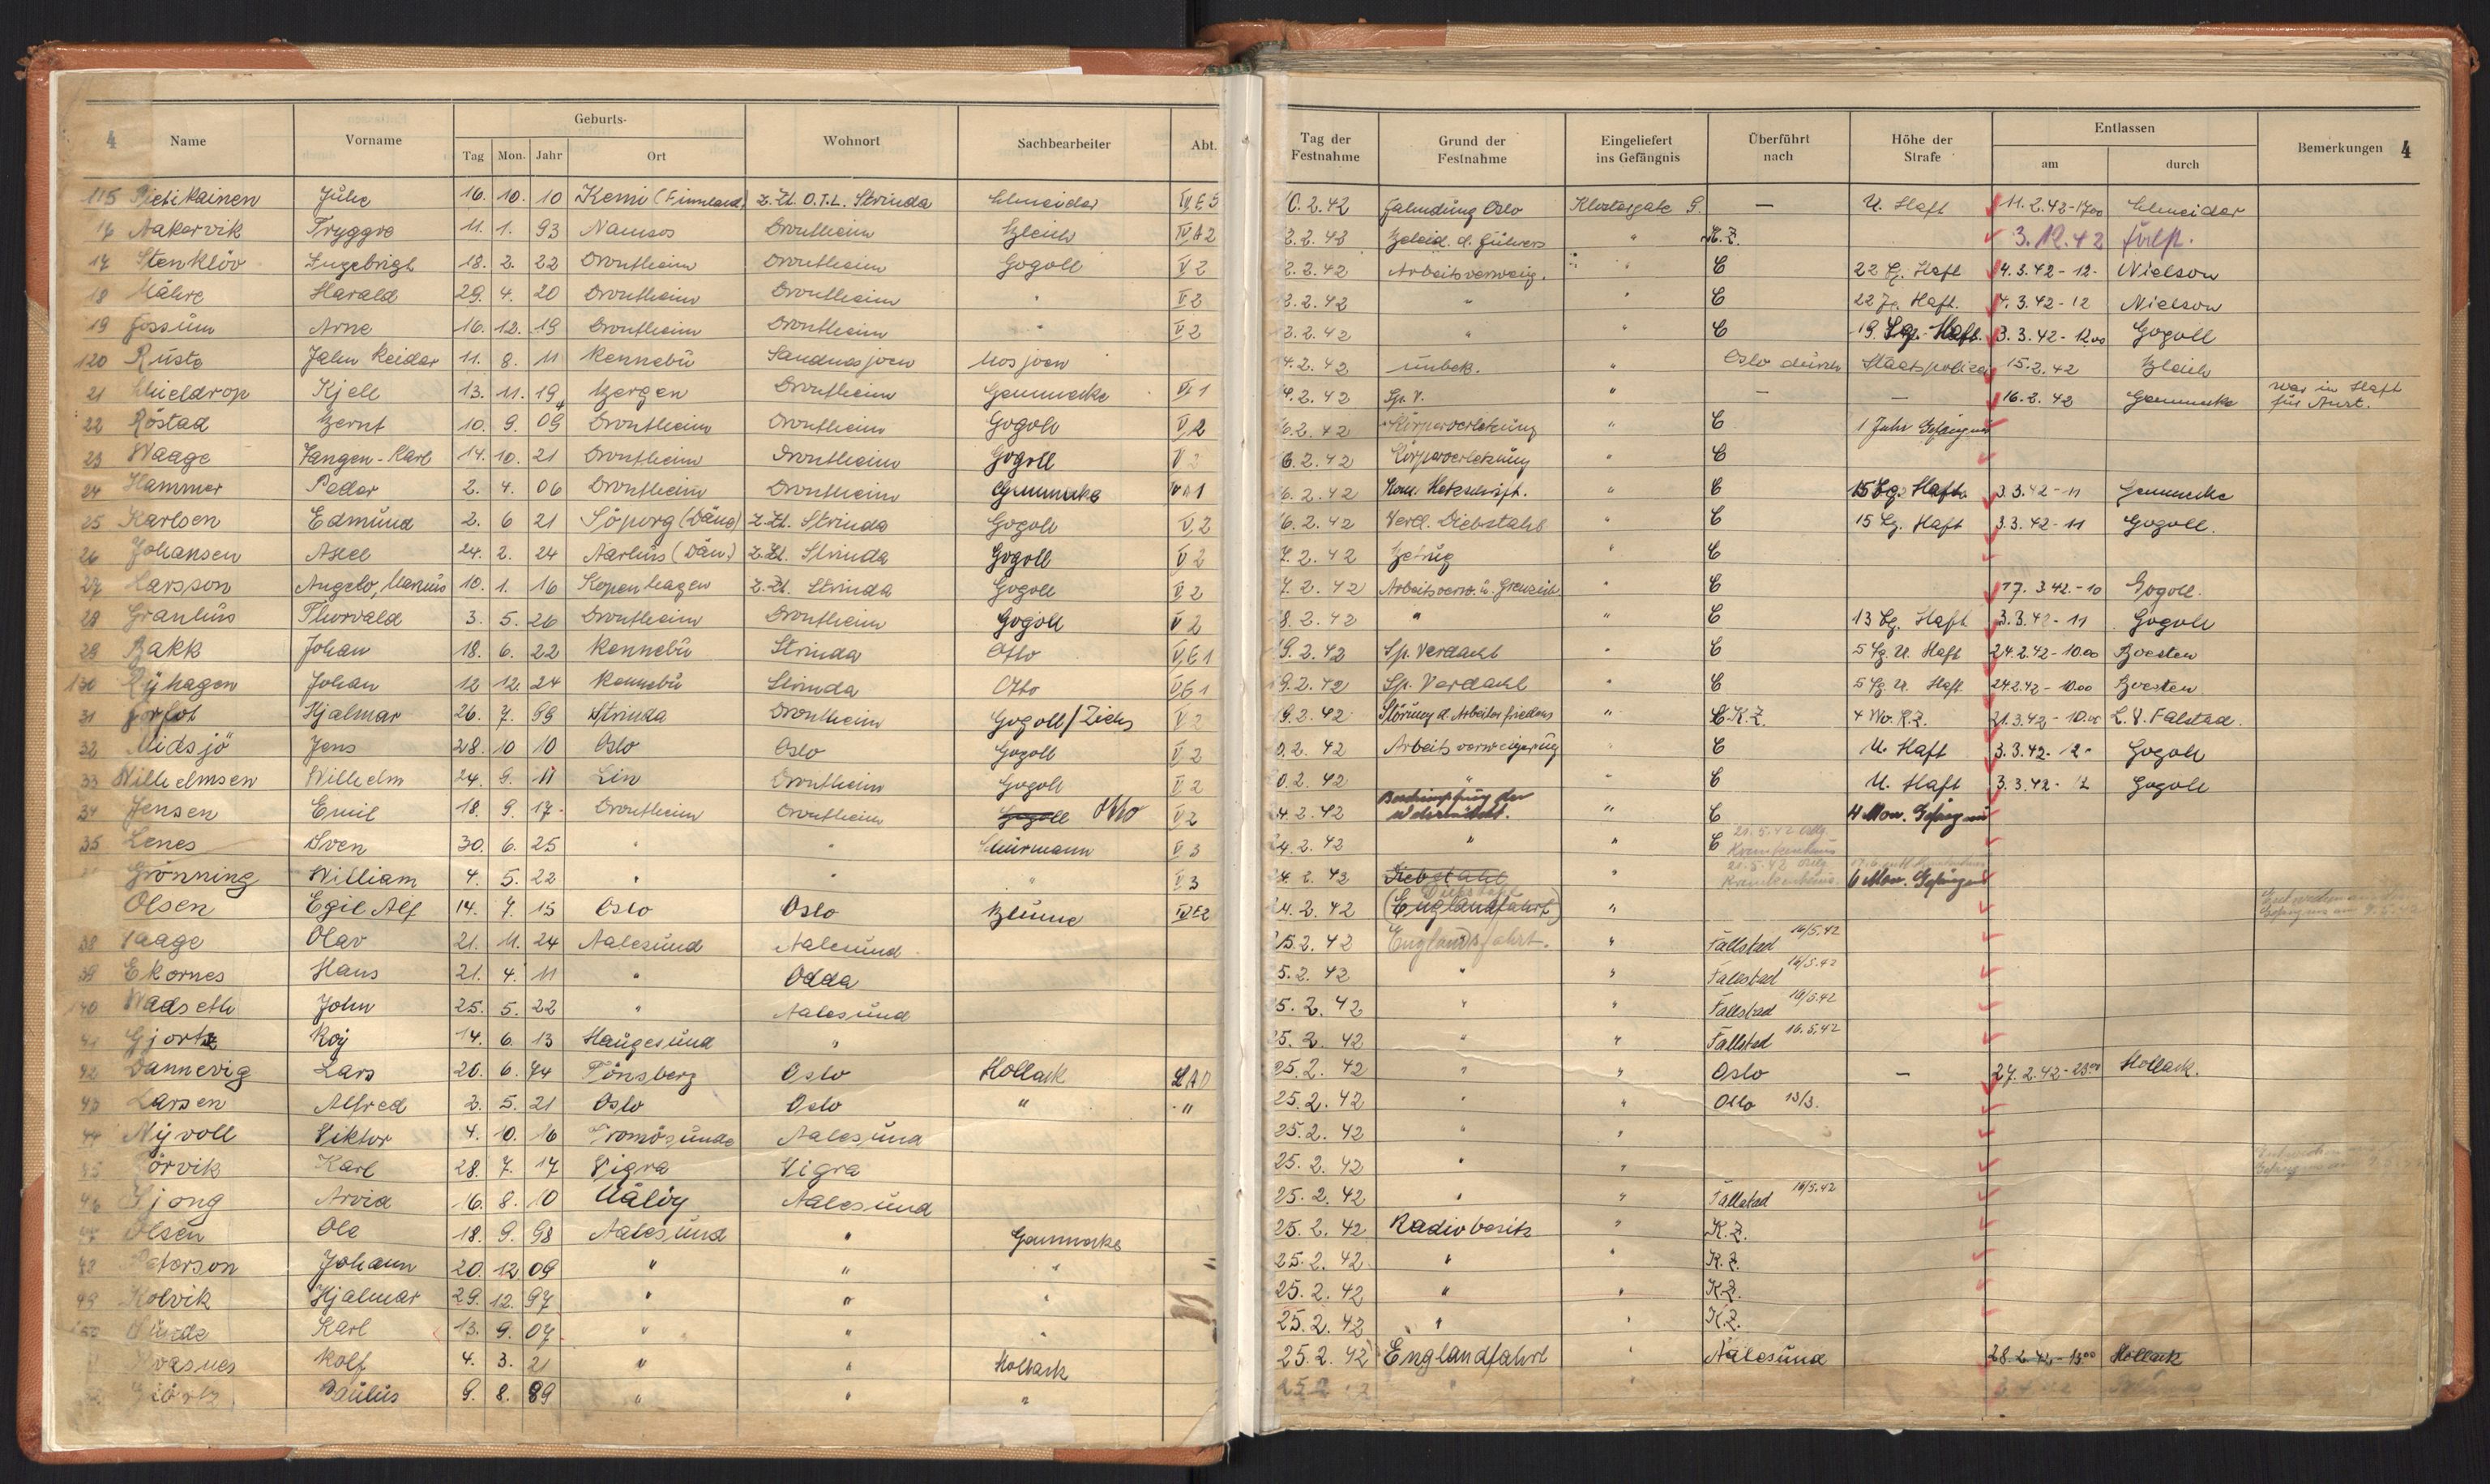 4 Name Vorname Geburts- Wohnort Sachbearbeiter Abt.
Tag Mon. Jahr Ort
115 Pietikainen Juho 16. 10. 10 Kemi (Finnland) z. Zt. O.T.L. Strinda Schneider
16 Aakervik Tryggve 11. 1. 93 Namsos Drontheim Bleich IV A 2
17 Stenklöv Ingebrigt 18. 2. 22 Drontheim Drontheim Gogoll V 2
18 Mähre Harald 29. 4. 20 Drontheim Drontheim " V 2
19 Fossum Arne 16. 12. 19 Drontheim Drontheim " V 2
120 Ruste John Reidar 11. 8. 11 Rennebu Sandnesjoen Mosjoen
21 Kjell 13. 11. 19 Bergen Drontheim Gemmecke
22 Röstad Bernt 10. 9. 09 Drontheim Drontheim Gogoll V 2
23 Waage Karl 14. 10. 21 Drontheim Drontheim Gogoll V 2
24 Hammer Peder 2. 4. 06 Drontheim Drontheim Gemmecke
25 Karlsen Edmund 2. 6 21 (Däng) z. Zt. Strinda Gogoll V 2
26 Johansen Axel 24. 2. 24 Aarhus (Dän.) z. Zt. Strinda Gogoll V 2
27 Larsson Angelo, Marius 10. 1. 16 Kopenhagen z. Zt. Strinda Gogoll V 2
28 Granhus Thorvald 3. 5. 26 Drontheim Drontheim Gogoll V 2
29 Bakk Johan 18. 6. 22 Rennebu Strinda Otto
130 Ryhagen Johan 12 12. 24 Rennebu Strinda Otto
31 Hjalmar 26. 7. 99 Strinda Drontheim Gogoll/ V 2
32 Midsjö Jens 28. 10 10 Oslo Oslo Gogoll V 2
33 Wilhelmsen Wilhelm 24. 9. 11 Lin Drontheim Gogoll V 2
34 Jensen Emil 18. 9. 17. Drontheim Drontheim Gogoll Otto V 2
35 Lenes Sven 30. 6. 25 " " V 3
Grönning William 4. 5. 22 " " " V 3
Olsen Egil Alf 14. 7. 15 Oslo Oslo Blume
38 Olav 21. 11. 24 Aalesund Aalesund
39 Ekornes Hans 21. 4. 11 " Odda
140 Wadseth John 25. 5. 22 " Aalesund
41 Gjortz Roy 14. 6. 13 Haugesund "
42 Dannevig Lars 20. 6. 74 Tönsberg Oslo Hollack
43 Larsen Alfred 2. 5. 21 Oslo Oslo " "
44 Nyvoll Viktor 4. 10. 16 Aalesund
45 Karl 28. 7. 17 Vigra Vigra
46 Arvid 16. 8. 10 Aalesund
47 Olsen Ole 18. 9. 98 Aalesund " Gemmecke
48 Peterson Johann 20. 12 09 " " "
49 Kolvik Hjalmar 29. 12. 97 " " "
150 Karl 13. 9. 07 " " "
Rolf 4. 3. 21 " " Hollack
Paulus 9. 8. 89 " " "
Tag der Festnahme Grund der Festnahme Eingeliefert ins Gefängnis Überführt nach Höhe der Strafe Entlassen Bemerkungen 4
am durch
10. 2. 42 Fahndung Oslo Klostergate G. — U. Haft 11. 2. 42 - 17 00 Schneider
2. 2. 42 Beleid. d. Führers " K. Z. 3. 12. 42
2. 2. 42 Arbeitsverweig. " C 22 Tg. Haft 4. 3. 42 - 12 - Nielson
2. 2. 42 " " C 22 Tg. Haft. 4. 3. 42 - 12 Nielson
2. 2. 42 " " C 19 Tg. Haft. 3. 3. 42 - 12 00 Gogoll
4. 2. 42 unbek. " Oslo durch Staatspolizei 15. 2. 42 Bleich
4. 2. 42 Sp. V. " — — 16. 2. 42 Gemmecke war in Haft
für Aust.
6. 2. 42 Körperverletzung " C 1 Jahr Gefängnis
6. 2. 42 Körperverletzung " C
6. 2. 42 Kom. Hetzschrift. " C 15 Tg. Haft. 3. 3. 42 - 11 Gemmecke
6. 2. 42 Verd. Diebstahls " C 15 Tg. Haft 3. 3. 42 - 11 Gogoll.
7. 2. 42 Betrug " C
7. 2. 42 Arbeitsverw. u. " C 17. 3. 42. - 10 Gogoll.
8. 2. 42 " " C 13 Tg. Haft 3. 3. 42 - 11 Gogoll
9. 2. 42 Sp. Verdacht " C 5 Tg. U. Haft 24. 2. 42 - 10.00
9. 2. 42 Sp. Verdacht " C 5 Tg. U. Haft 24 2. 42 - 10.00
9. 2. 42 Störung d. Arbeiterfriedens " C. K. Z. 4 Wo. K. Z. 21. 3. 42 - 10.00 L. V. Falstad.
0. 2. 42 Arbeitsverweigerung " C U. Haft 3. 3. 42 - 12 - Gogoll
0. 2. 42 " " C U. Haft 3. 3. 42 - 12 Gogoll
4. 2. 42 Beschimpfung der
Wehrmacht. " C 4 Mon. Gefängnis
4. 2. 42 " " C Krankenhaus
4. 2. 42 Diebstahl " Krankenhaus. 6 Mon. Gefängnis
4. 2. 42 Diebstahl
(Englandfahrt) "
25. 2. 42 Englandsfahrt. " Fallstad 16/5. 42
5. 2. 42 " " Fallstad 16/5. 42
5. 2. 42 " " Fallstad 16/5. 42
5. 2. 42 " " Fallstad 16. 5. 42
25. 2. 42 " " Oslo — 27. 2. 42 - 23 00 Hollack.
25. 2. 42 " " Oslo 13/3.
25. 2. 42 " "
25. 2. 42 " "
25. 2. 42 " " Fallstad 16/5. 42
25. 2. 42 Radiobesitz " K. Z.
25. 2. 42 " " K. Z.
25. 2. 42 " " K. Z.
25. 2. 42 " " K. Z.
25. 2. 42 Englandfahrt " Aalesund 28. 2. 42 - 13 00 Hollack